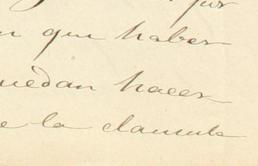 que haber
quedan hacer
la clausula